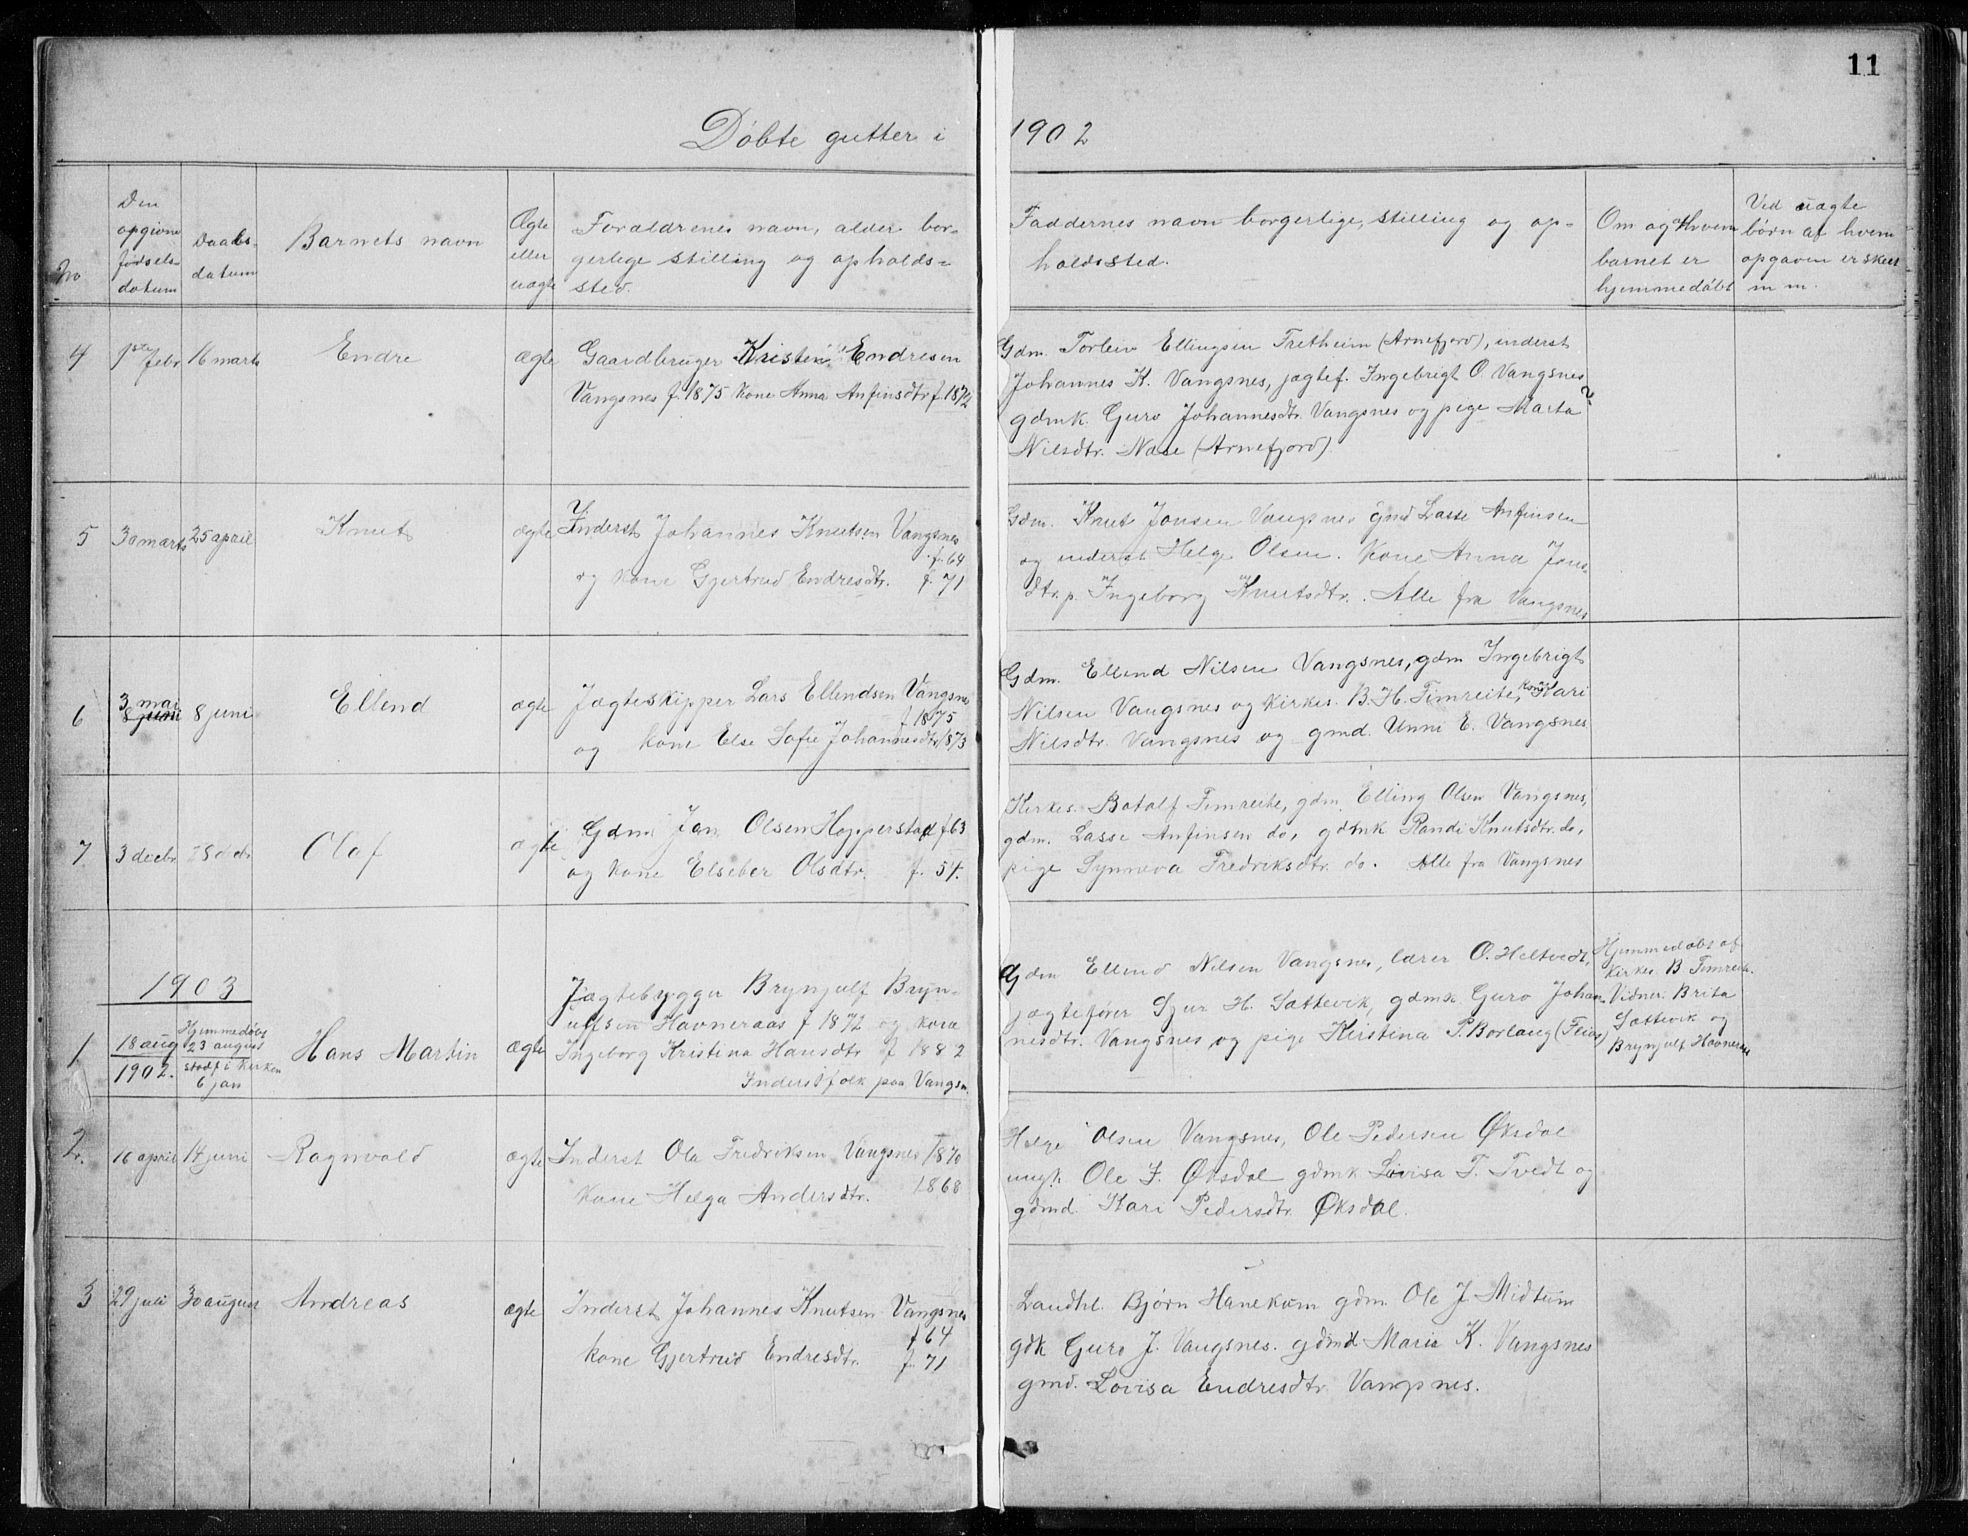 11
Døbte gutter i 1902
No
Den
opgivne
fødsels-
datum
Daabs-
datum
Barnets navn
Ægte
eller
uægte
Forældrenes navn, alder bor-
gerlige stilling og opholds-
sted.
Faddernes navn borgerlige, stilling og op-
holdssted.
Om og af hvem
barnet er
hjemmedøbt
Ved uægte
børn af hvem
opgaven er skeet
m m.
4
1ste febr
16 marts
Endre
ægte
Gaardbruger Kristen Endresen
Vangsnes f. 1875 kone Anna Anfinsdtr f. 1872
Gdm. Torleiv Ellingsen Tretheim (Arnefjord), inderst
Johannes K. Vangsnes, jægtef. Ingebrigt O. Vangsnes
gdmk. Guro Johannesdtr. Vangsnes og pige Marta
Nilsdtr. Nase (Arnefjord)
5
30 marts
25 april
Knut
ægte
Inderst Johannes Knutsen Vangsnes
f. 64
og kone Gjertrud Endresdtr. f. 71
Gdm. Knut Jonsen Vangsnes gmd Lasse Anfinsen
og inderst Helge Olsen. Kone Anna Jons-
dtr. p. Ingeborg Knutsdtr. Alle fra Vangsnes
6
3 mai
8 juni
8 juni
Ellend
ægte
Jægteskipper Lars Ellendsen Vangsnes
f 1875
og kone Else Sofie Johannesdtr 1873
Gdm. Ellend Nilsen Vangsnes, gdm Ingebrigt
Nilsen Vangsnes og Kirkes. B. H. Fimreite, Kone Kari
Nilsdtr. Vangsnes og gmd. Unni E. Vangsnes
7
3 decbr
28 decbr
Olaf
ægte
Gdm Jon Olsen Hopperstad f 63
og kone Elseber Olsdtr. f. 54.
Kirkes. Botolf Fimreite, gdm. Elling Olsen Vangsnes,
gdm. Lasse Anfinsen do, gdmk Randi Knutsdtr. do,
pige Synneva Fredriksdtr. do. Alle fra Vangsnes
1903
1
18 aug
1902.
Hjemmedøbt
23 august
stadf i kirken
6 jan
Hans Martin
ægte
Jægtebygger Brynjulf Bryn-
ulfsen Havneraas f 1872 og kone
Ingeborg Kristina Hansdtr f 1882
Inderstfolk paa Vangsn.
Gdm Ellend Nilsen Vangsnes, lærer O. Heltvedt,
jægtefører Sjur H. Sættevik, gdmk Guro Johan-
nesdtr. Vangsnes og pige Kristina P. Borlaug (Feios)
Hjemmedøbt af
Kirkes. B Fimreite.
Vidner. Brita
Sættevik og
Brynjulf Havneraas
2.
16 april
14 juni
Ragnvald
ægte
Inderst Ola Fredriksen Vangsnes 1870
kone Helga Andersdtr. 1868
Helge Olsen Vangsnes, Ole Pedersen Øksdal
ungk. Ole J. Øksdal gdmk Lovisa T. Tvedt og
gdmd. Kari Pedersdtr. Øksdal.
3
29 juli
30 august
Andreas
ægte
Inderst Johannes Knutsen Vangsnes
f 64
kone Gjertrud Endresdtr. f. 71
Landhl. Bjørn Hanekam gdm Ole J. Midtun
gdk Guro J. Vangsnes. gdmd Marie K. Vangsnes
gmd. Lovisa Endresdtr. Vangsnes.